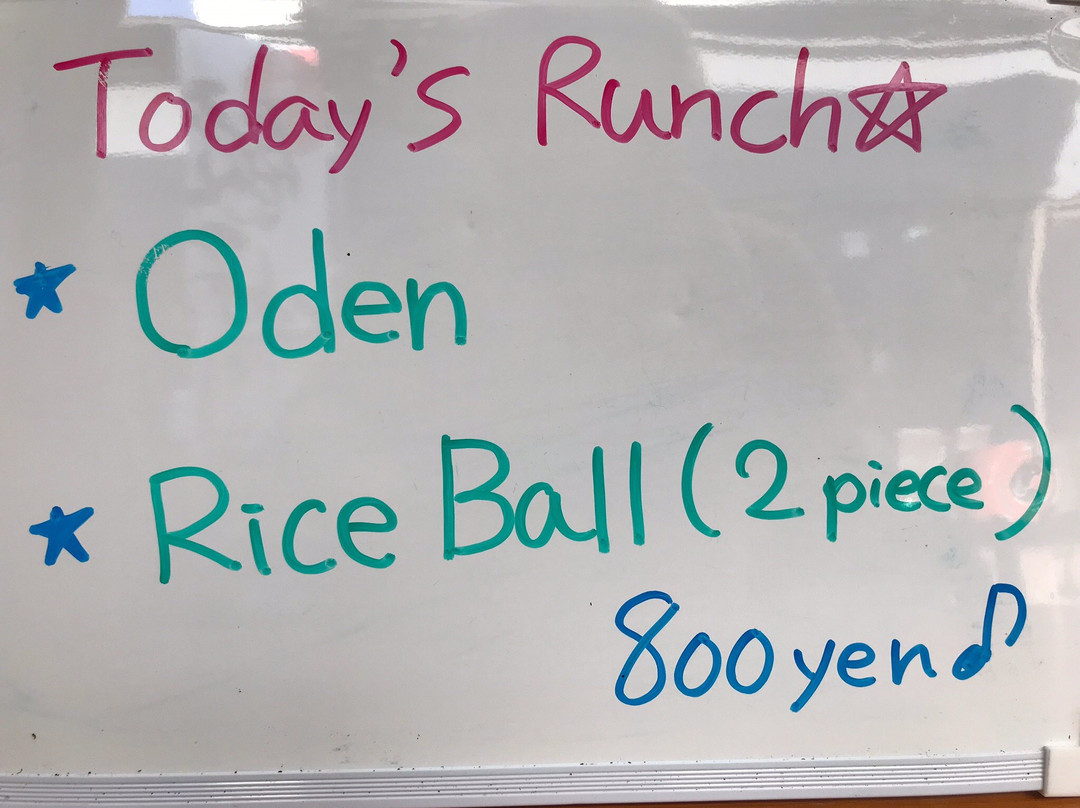 Today's Runch☆
★ Oden
★ Rice Ball (2 piece)
800 yen♪